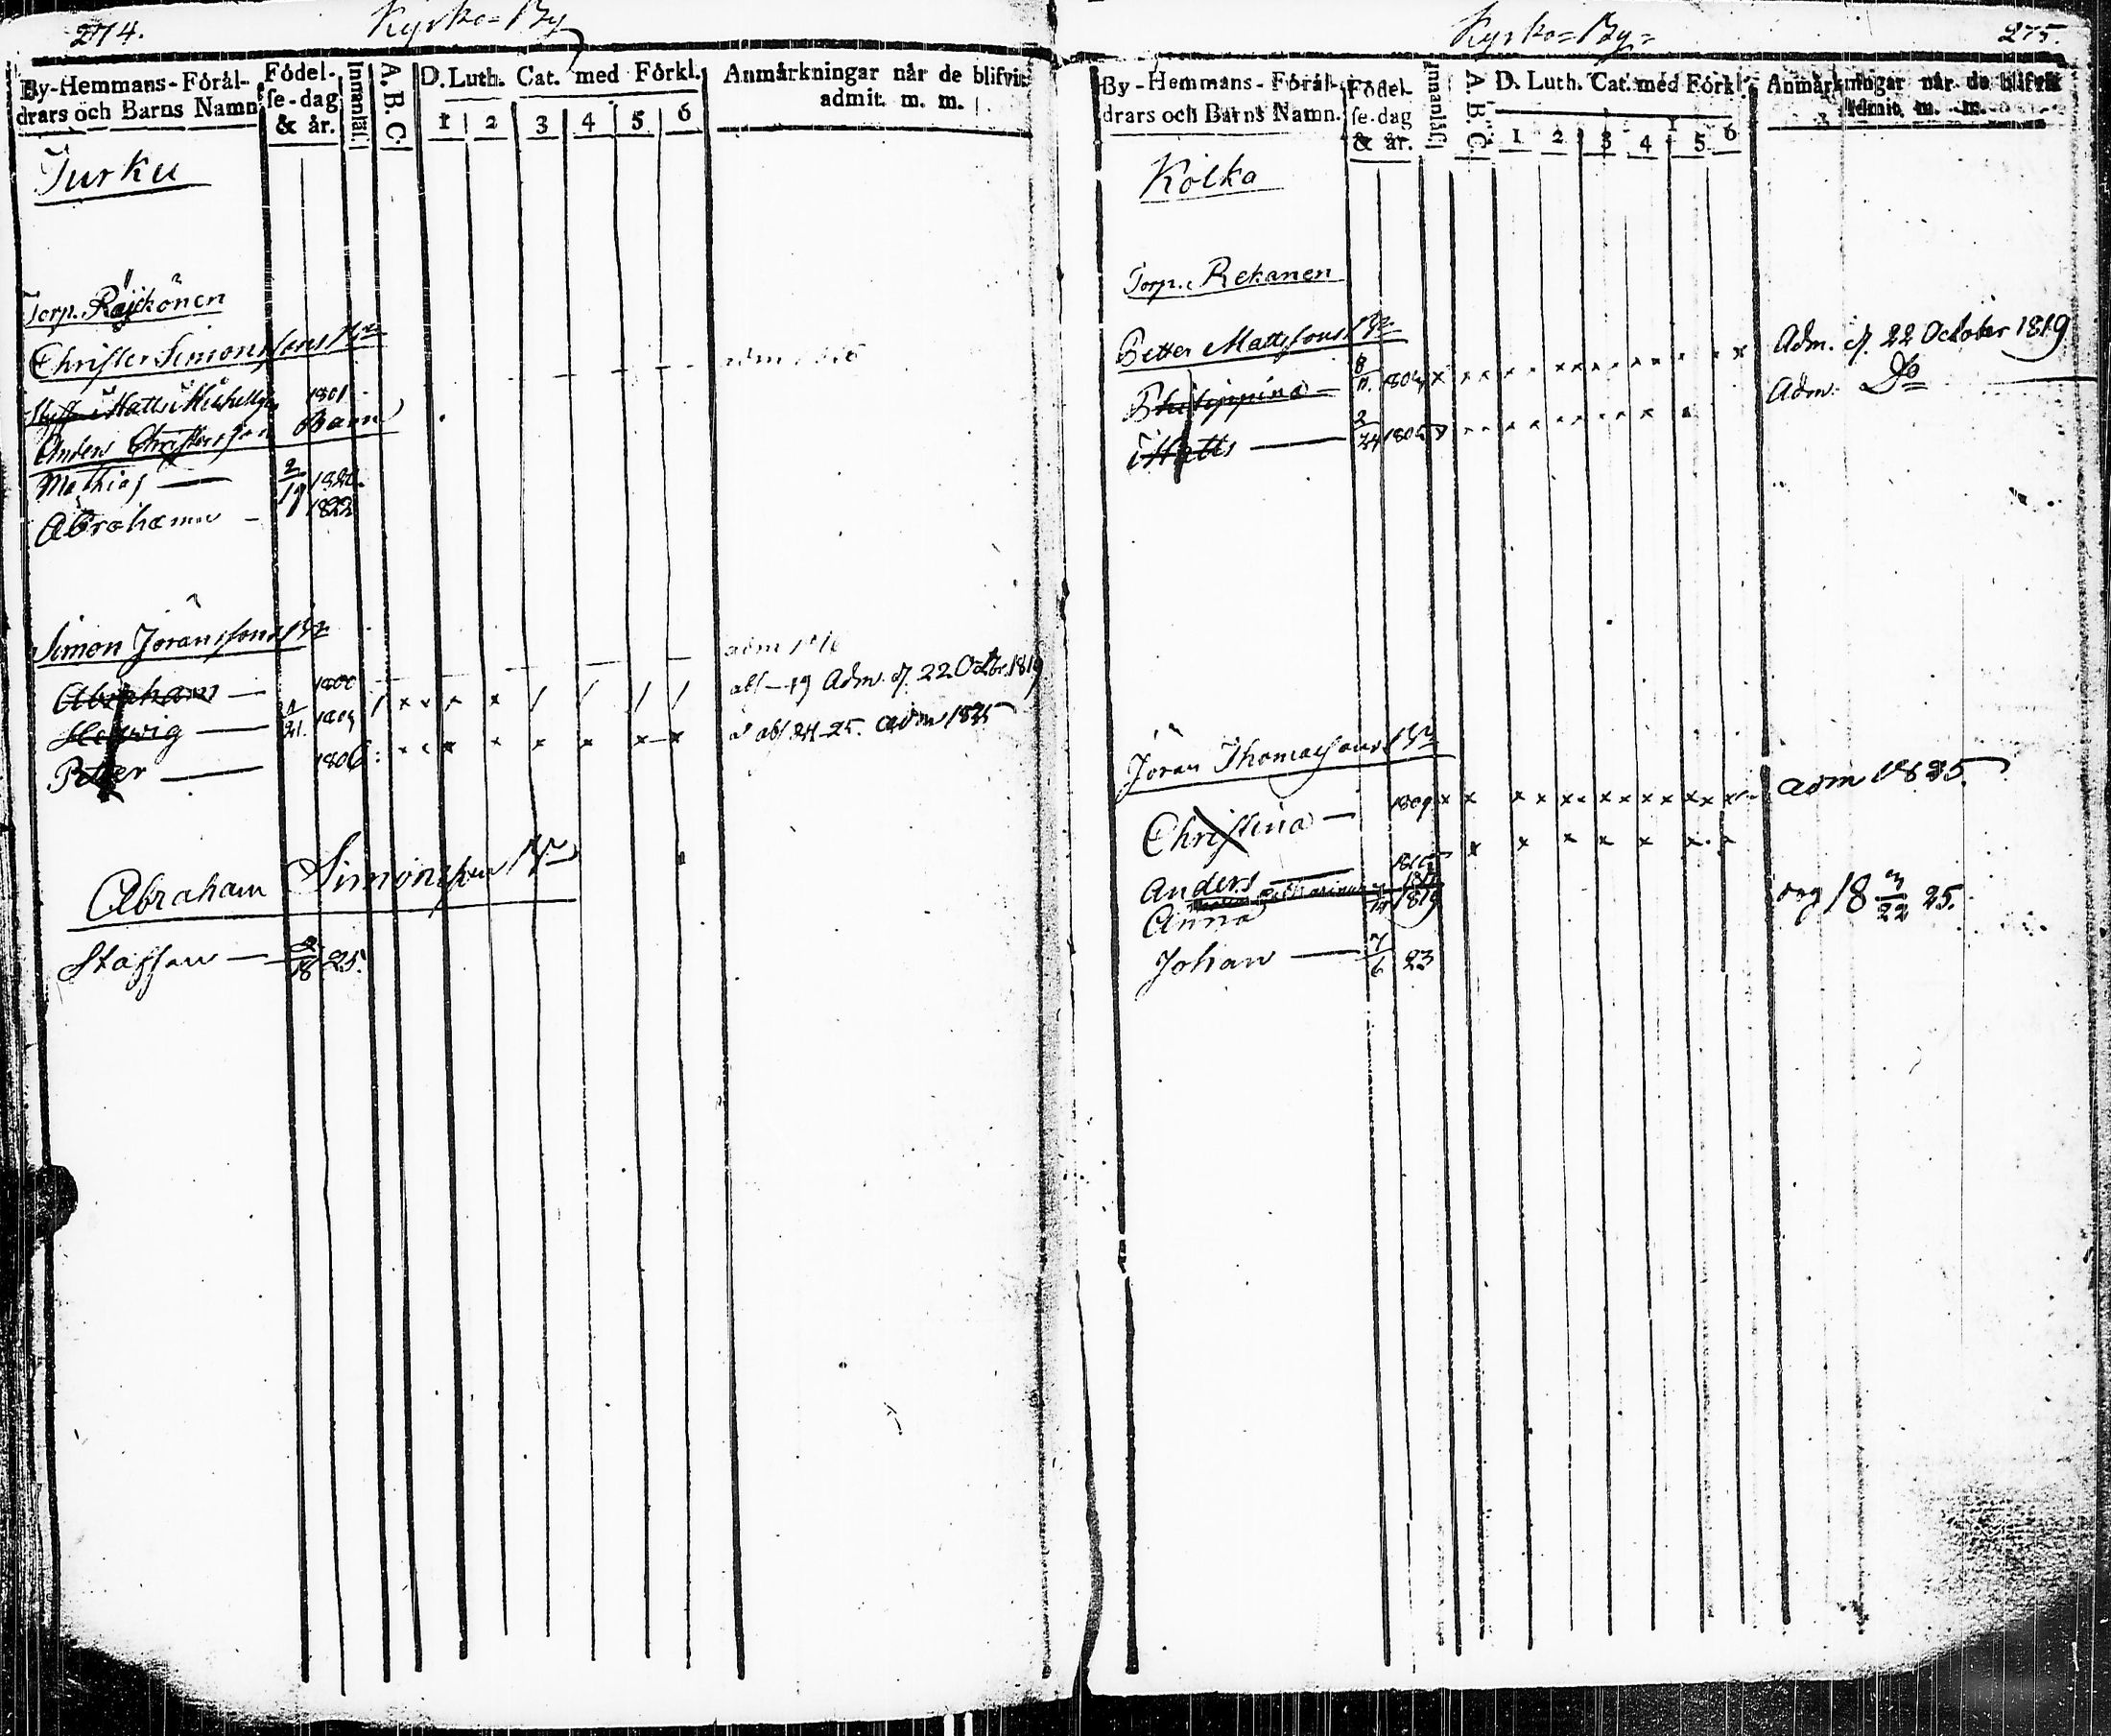 274.
Kyrko=By
By-Hemmans-Föräl-
drars och Barns Namn
Födel-
se-dag
& år.
Innanläs.
A. B. C.
D. Luth. Cat. med Förkl.
1 2 3 4 5 6
Anmärkningar når de blifvit
admit. m. m.
Turku
Torp. Räjkönen
Christer Simonssons Bn
Matts Michelss. 1801
Anders Christersson Barn
Mathias — 2/19 1820.
Abraham — 1822
Simon Jöranssons Bn
adm 1816
Abraham — 1800
Hedwig — 21. 1804 abs — 19 Adm. d. 22 Octbr. 1819
Petter — 1806 abs 24-25. adm 1825
Abraham Simonsson Bn
Staffan — 2/18 25.
275.
Kyrko=By=
By-Hemmans-Föräl-
drars och Barns Namn.
Födel-
se-dag
& år.
Innanläs.
A. B. C.
D. Luth. Cat. med Förkl.
1 2 3 4 5 6
Anmärkningar når de blifvit
admit. m. m.
Kolka
Torp. Rekanen
Petter Mattssons Bn
Philippina — 8/11. 1804 Adm. d. 22 October 1819
Matts — 2/24 1805 Adm. Do
Jöran Thomassons Bn
Christina — 1809 adm 1825.
Anders —
Anna 1819 18 3/22 25.
Johan — 7/6 23